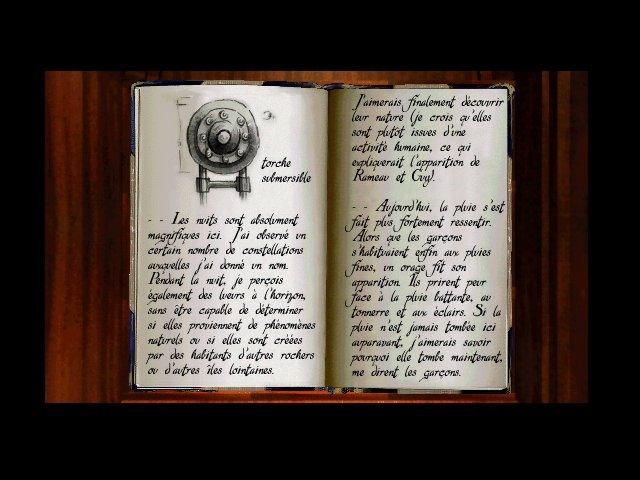 torche
submersible
- - Les nuits sont absolument
magnifiques ici. J'ai observé un
certain nombre de constellations
auxquelles j'ai donné un nom.
Pendant la nuit, je perçois
également des lueurs à l'horizon,
sans être capable de déterminer
si elles proviennent de phénomènes
naturels ou si elles sont créées
par des habitants d'autres rochers
ou d'autres îles lointaines.
J'aimerais finalement découvrir
leur nature (je crois qu'elles
sont plutôt issues d'une
activité humaine, ce qui
expliquerait l'apparition de
Rameau et Guy).
- - Aujourd'hui, la pluie s'est
fait plus fortement ressentir.
Alors que les garçons
s'habituaient enfin aux pluies
fines, un orage fit son
apparition. Ils prirent peur
face à la pluie battante, au
tonnerre et aux éclairs. Si la
pluie n'est jamais tombée ici
auparavant, j'aimerais savoir
pourquoi elle tombe maintenant,
me dirent les garçons.